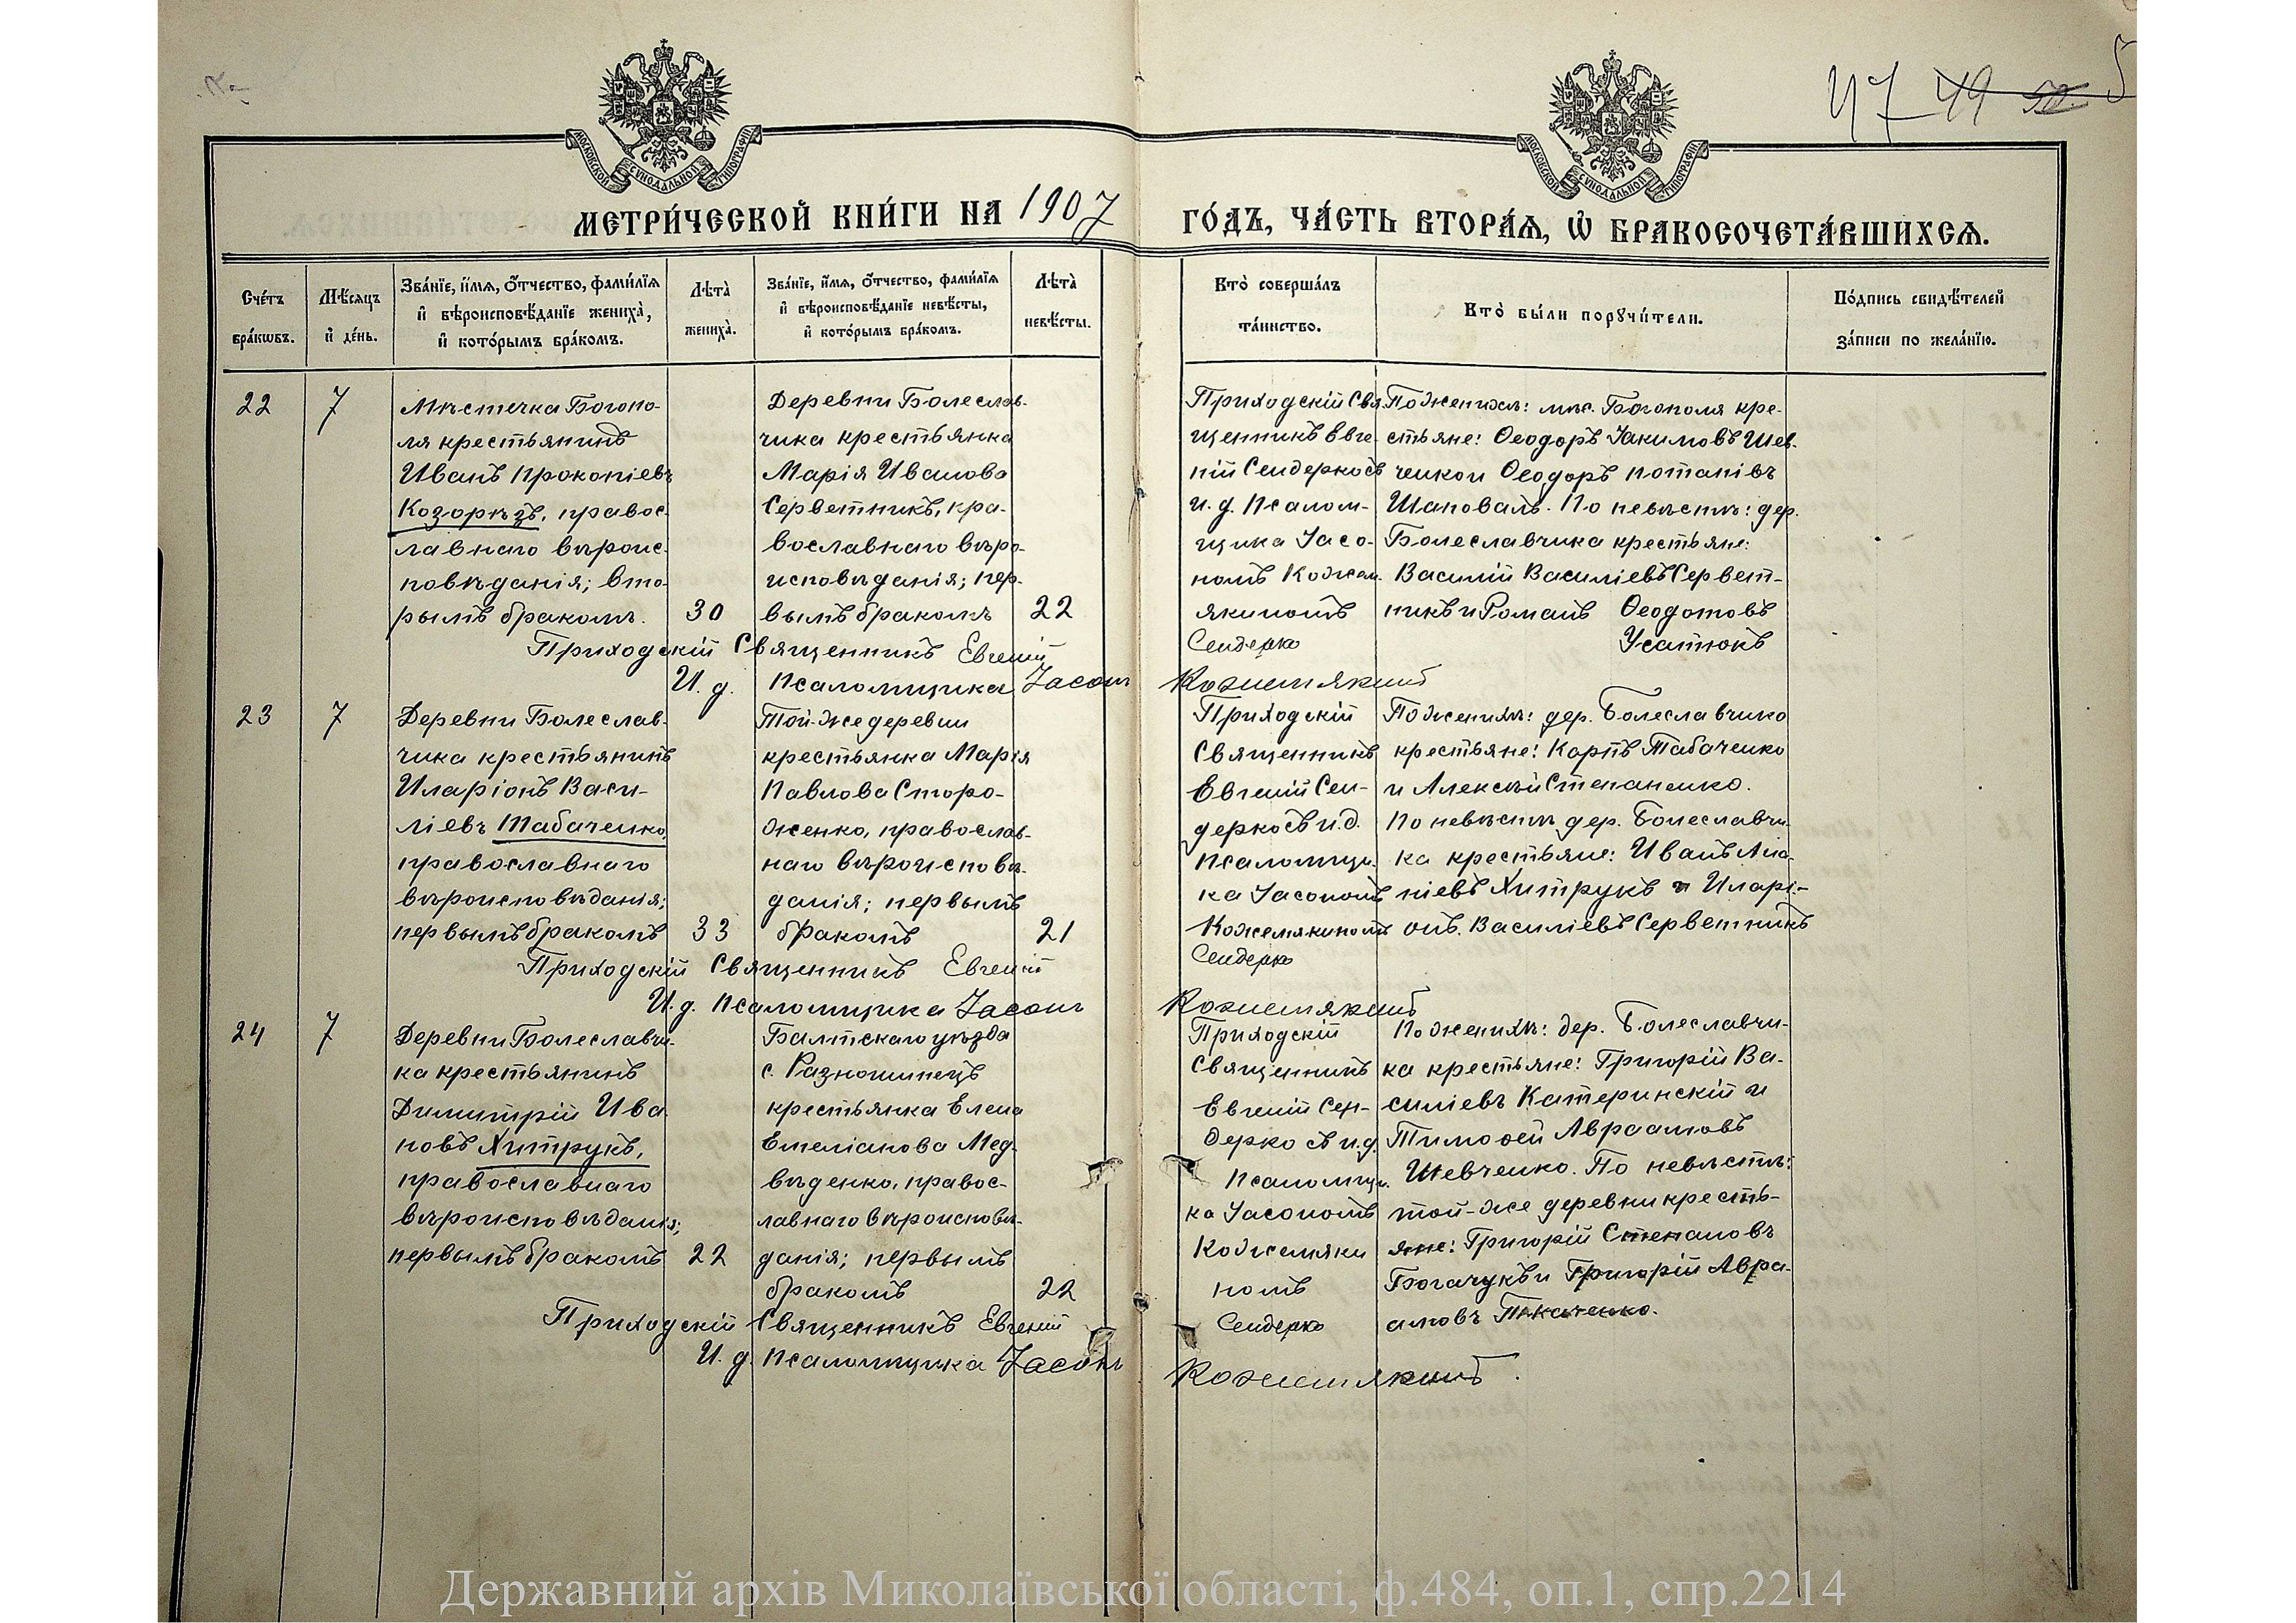 47 49 50 5
МОСКОВСКОЙ СѴНОДАЛЬНОЙ ТИПОГРАФІИ
МОСКОВСКОЙ СѴНОДАЛЬНОЙ ТИПОГРАФІИ
МЕТРИ́ЧЕСКОЙ КНИ́ГИ НА 1907 ГО́ДЪ, ЧА́СТЬ ВТОРА́Ѧ, Ѽ БРАКОСОЧЕТА́ВШИХСѦ.
Сче́тъ бра́кѡвъ.
Мѣ́сяцъ и҆ де́нь.
Зва́нїе, и҆́мѧ, ѻ҆́тчество, фами́лїѧ
и҆ вѣроисповѣ́данїе жениха̀,
и҆ кото́рымъ бра́комъ.
Лѣта̀ жениха̀.
Зва́нїе, и҆́мѧ, ѻ҆́тчество, фами́лїѧ
и҆ вѣроисповѣ́данїе невѣ́сты,
и҆ кото́рымъ бра́комъ.
Лѣта̀ невѣ́сты.
Кто̀ соверша́лъ
та́инство.
Кто̀ бы́ли порꙋчи́тели.
По́дпись свидѣ́телей
за́писи по жела́нїю.
22
7
Мѣстечка Богопо-
ля крестьянинъ
Иванъ Прокопіевъ
Козорѣзъ, правос-
лавнаго вѣроис-
повѣданія; вто-
рымъ бракомъ.
30
Деревни Болеслав-
чика крестьянка
Марія Иванова
Серветникъ, пра-
вославнаго вѣро-
исповѣданія; пер-
вымъ бракомъ
22
Приходскій Свя-
щенникъ Евге-
ній Сендерко съ
и. д. Псалом-
щика Іасо-
номъ Кожем-
якиномъ
По женихѣ: мѣс. Богополя кре-
стьяне: Ѳеодоръ Іакимовъ Шев-
ченко и Ѳеодоръ Потапівъ
Шаповалъ. По невѣстѣ: дер.
Болеславчика крестьяне:
Василій Василіевъ Сервет-
никъ и Романъ Ѳеодотовъ
Усатюкъ
Приходскій Священникъ Евгеній Сендерко
И. д. Псаломщика Іасонъ Кожемякинъ
23
7
Деревни Болеслав-
чика крестьянинъ
Иларіонъ Васи-
ліевъ Табаченко,
православнаго
вѣроисповѣданія;
первымъ бракомъ
33
Той-же деревни
крестьянка Марія
Павлова Сторо-
женко, православ-
наго вѣроисповѣ-
данія; первымъ
бракомъ
21
Приходскій
Священникъ
Евгеній Сен-
дерко съ и. д.
Псаломщи-
ка Іасономъ
Кожемякиномъ
По женихѣ: дер. Болеславчика
крестьяне: Карпъ Табаченко
и Алексѣй Степаненко.
По невѣстѣ дер. Болеславчи-
ка крестьяне: Иванъ
ніевъ Хитрукъ и Иларі-
онъ Василіевъ Серветникъ
Приходскій Священникъ Евгеній Сендерко
И. д. Псаломщика Іасонъ Кожемякинъ
24
7
Деревни Болеславчи-
ка крестьянинъ
Димитрій Ива-
новъ Хитрукъ,
православнаго
вѣроисповѣданія;
первымъ бракомъ
22
Балтскаго уѣзда
с. Разношинецъ
крестьянка Елена
Емеліанова Мед-
вѣденко, правос-
лавнаго вѣроисповѣ-
данія; первымъ
бракомъ
22
Приходскій
Священникъ
Евгеній Сен-
дерко съ и. д.
Псаломщи-
ка Іасономъ
Кожемяки
номъ
По женихѣ: дер. Болеславчи-
ка крестьяне: Григорій Ва-
силіевъ Катеринскій и
Тимоѳей Авраамовъ
Шевченко. По невѣстѣ:
той-же деревни кресть-
яне: Григорій Степановъ
Богачукъ и Григорій Авра-
амовъ Ткаченко.
Приходскій Священникъ Евгеній Сендерко
И. д. Псаломщика Іасонъ Кожемякинъ.
Державний архів Миколаївської області, ф.484, оп.1, спр.2214